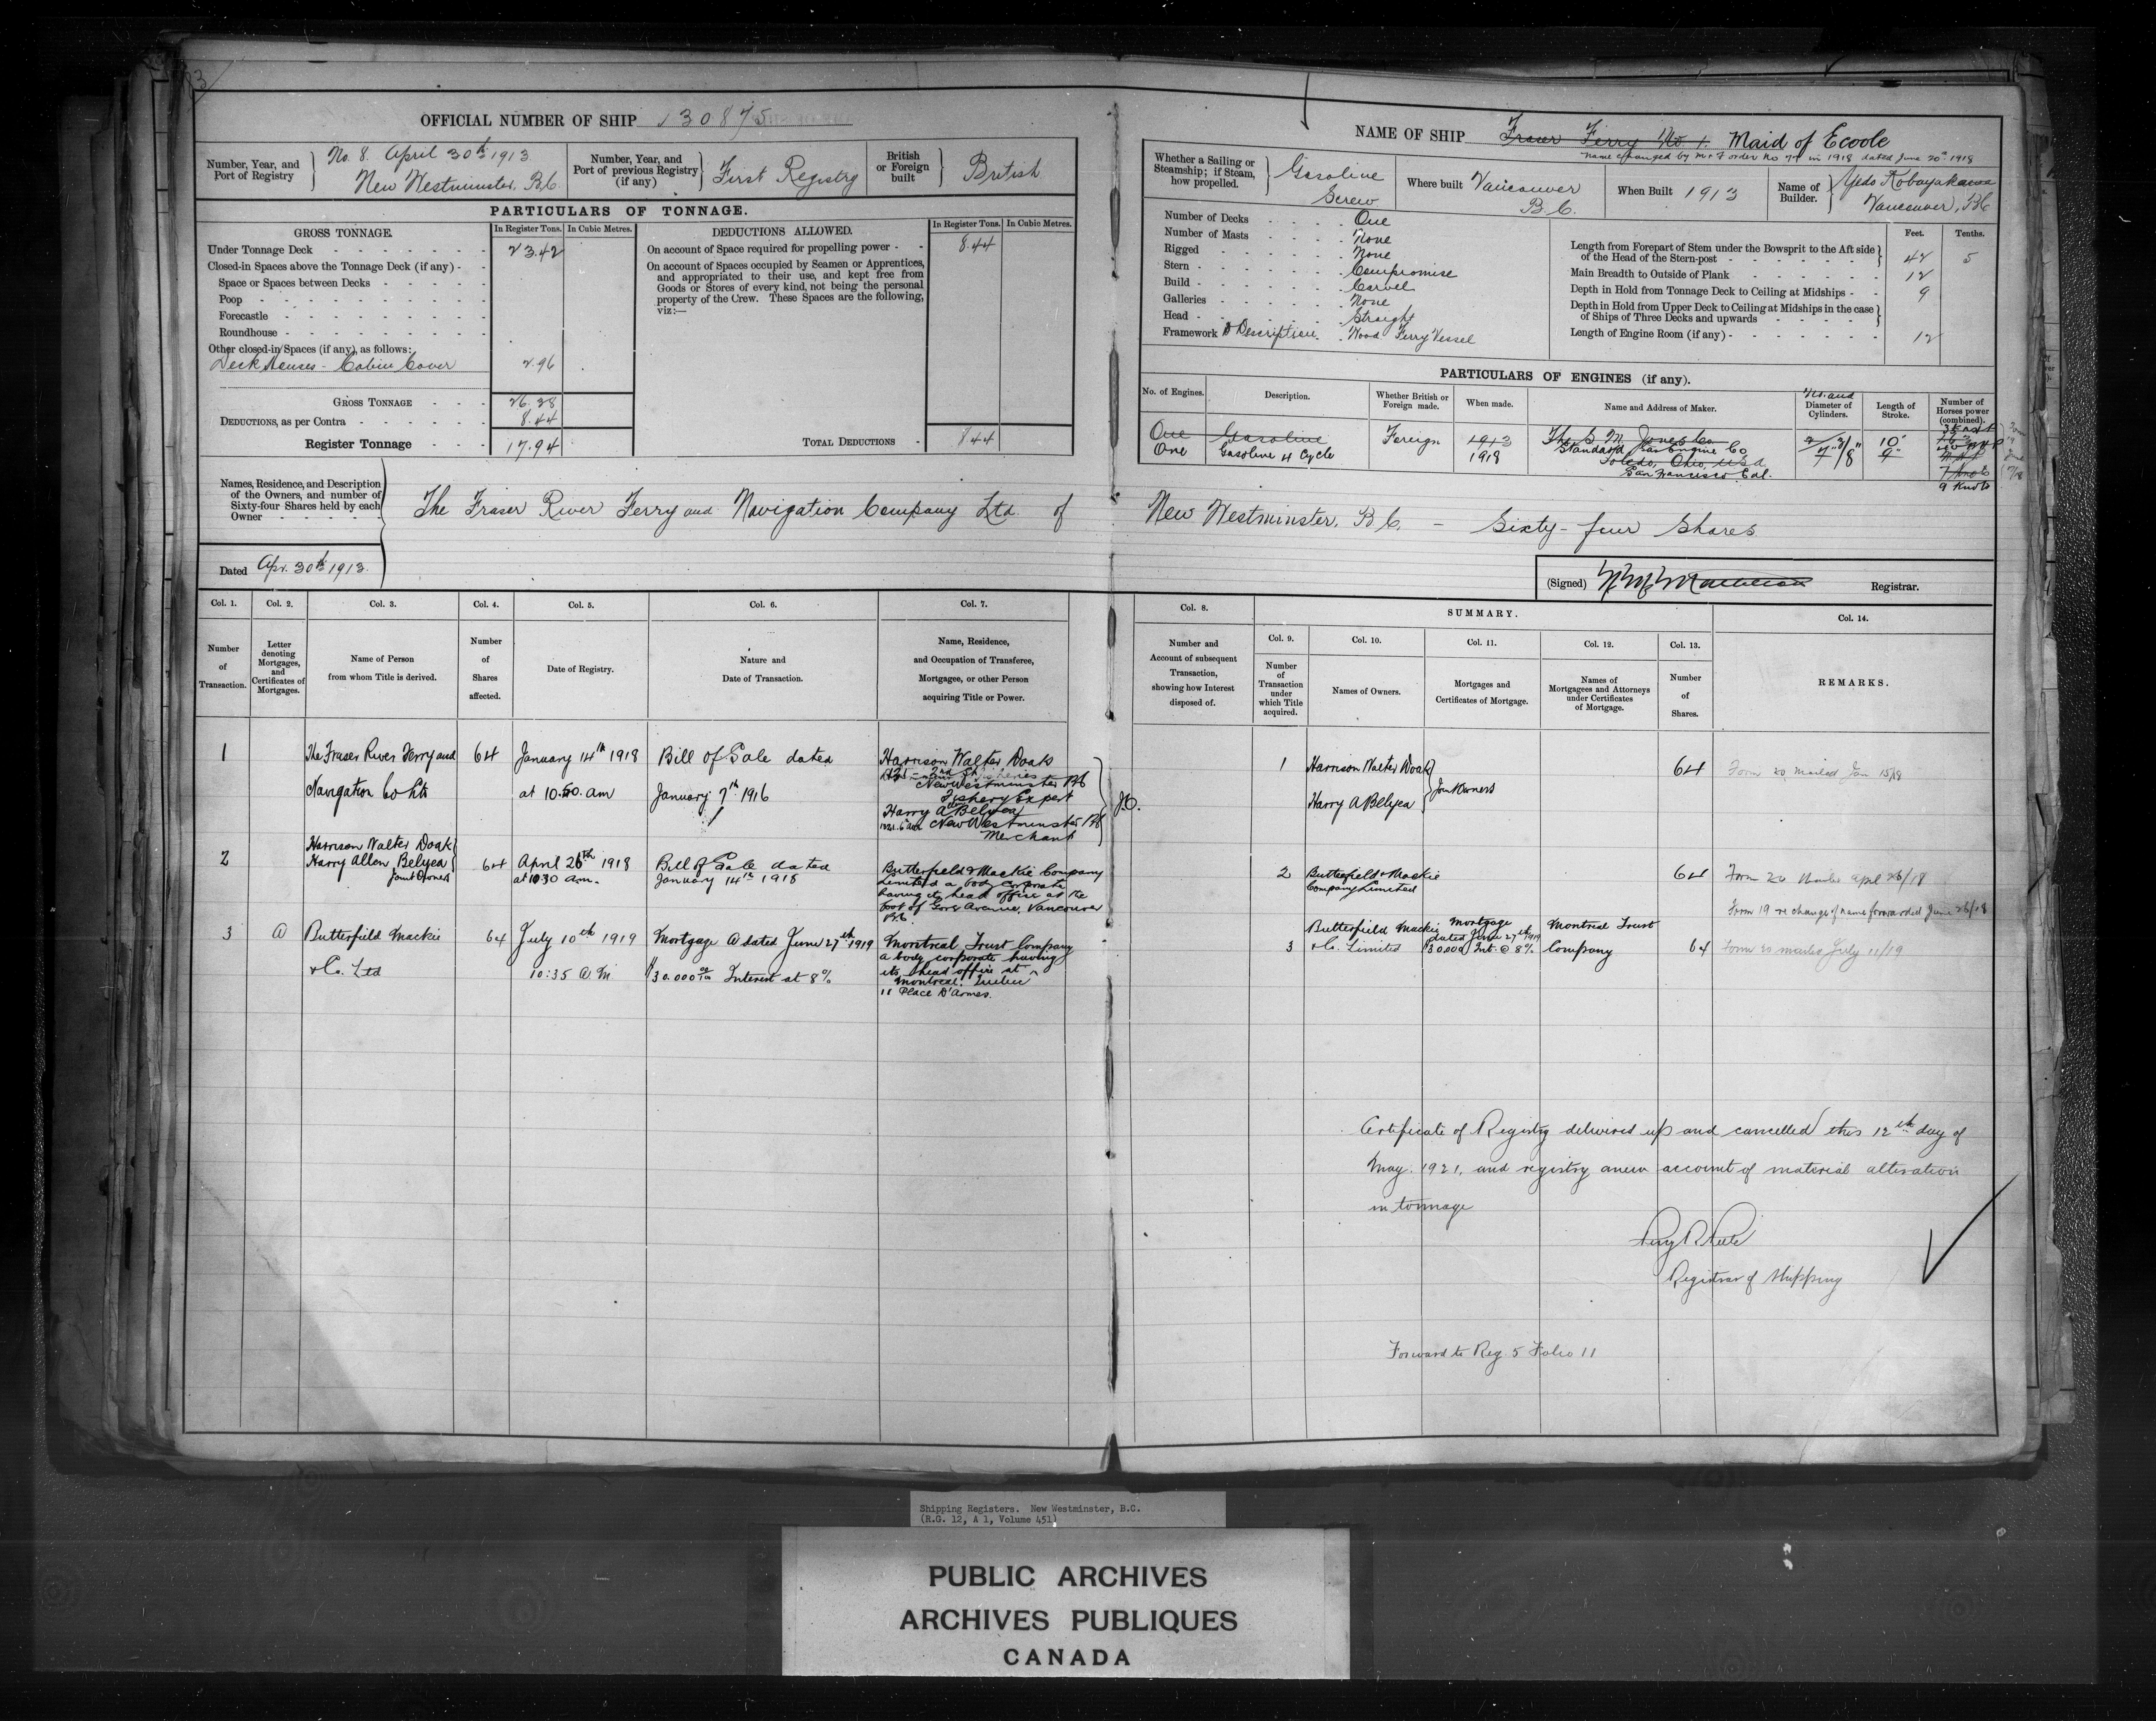 OFFICIAL NUMBER OF SHIP 130875
Number, Year, and Port of Registry
No. 8. April 30th 1913
New Westminster, B.C.
Number, Year, and Port of previous Registry (if any)
First Registry
British or Foreign built
British
PARTICULARS OF TONNAGE.
GROSS TONNAGE.
In Register Tons.
In Cubic Metres.
DEDUCTIONS ALLOWED.
In Register Tons.
In Cubic Metres.
Under Tonnage Deck 23.42
Closed-in Spaces above the Tonnage Deck (if any)
Space or Spaces between Decks
Poop
Forecastle
Roundhouse
Other closed-in Spaces (if any), as follows:
Deck Houses - Cabin Cover 2.96
GROSS TONNAGE 26.38
DEDUCTIONS, as per Contra 8.44
Register Tonnage 17.94
On account of Space required for propelling power 8.44
On account of Spaces occupied by Seamen or Apprentices,
and appropriated to their use, and kept free from
Goods or Stores of every kind, not being the personal
property of the Crew. These Spaces are the following,
viz:—
TOTAL DEDUCTIONS 8.44
NAME OF SHIP Fraser Ferry No. 1. Maid of Ecoole
name changed by in 1918 dated June 20th 1918
Whether a Sailing or Steamship; if Steam, how propelled.
Gasoline
Screw
Where built
Vancouver
B.C.
When Built 1913
Name of Builder.
Yedo Kobayakawa
Vancouver, BC
Number of Decks One
Number of Masts None
Rigged None
Stern Compromise
Build Carvel
Galleries None
Head Straight
Framework & Description. Wood Ferry Vessel
Feet. Tenths.
Length from Forepart of Stem under the Bowsprit to the Aft side
of the Head of the Stern-post 42 5
Main Breadth to Outside of Plank 12
Depth in Hold from Tonnage Deck to Ceiling at Midships 9
Depth in Hold from Upper Deck to Ceiling at Midships in the case
of Ships of Three Decks and upwards
Length of Engine Room (if any) 12
PARTICULARS OF ENGINES (if any).
No. of Engines.
Description.
Whether British or Foreign made.
When made.
Name and Address of Maker.
No. and Diameter of Cylinders.
Length of Stroke.
Number of Horses power (combined).
One Gasoline Foreign 1913 The Jones Co 10"
One Gasoline 4 Cycle 1918 Standard Gas Engine Co 9"
Toledo, Ohio, USA
San Francisco Cal.
7 knots
9 Knots
Names, Residence, and Description
of the Owners, and number of
Sixty-four Shares held by each
Owner
The Fraser River Ferry and Navigation Company Ltd. of New Westminster, B.C. - Sixty-four Shares
Dated Apr. 30th 1913.
(Signed) Registrar.
Col. 1.
Number of Transaction.
Col. 2.
Letter denoting Mortgages, and Certificates of Mortgages.
Col. 3.
Name of Person from whom Title is derived.
Col. 4.
Number of Shares affected.
Col. 5.
Date of Registry.
Col. 6.
Nature and Date of Transaction.
Col. 7.
Name, Residence, and Occupation of Transferee, Mortgagee, or other Person acquiring Title or Power.
Col. 8.
Number and Account of subsequent Transaction, showing how Interest disposed of.
SUMMARY.
Col. 9.
Number of Transaction under which Title acquired.
Col. 10.
Names of Owners.
Col. 11.
Mortgages and Certificates of Mortgage.
Col. 12.
Names of Mortgagees and Attorneys under Certificates of Mortgage.
Col. 13.
Number of Shares.
Col. 14.
REMARKS.
1
The Fraser River Ferry and
Navigation Co Ltd
64
January 14th 1918
at 10.50. am
Bill of Sale dated
January 7th 1916
Harrison Walter Doak
New Westminster BC
Fishery Expert
Harry A Belyea
New Westminster BC
Merchant
J.O.
1
Harrison Walter Doak
Harry A Belyea
Joint Owners
64
Form 20 mailed Jan 15/18
2
Harrison Walter Doak
Harry Allen Belyea
Joint Owners
64
April 26th 1918
at 10.30 am.
Bill of Sale dated
January 14th 1918
Butterfield & Mackie Company
Limited a body corporate
having its head office at the
foot of Gore Avenue, Vancouver
B.C
2
Butterfield & Mackie
Company Limited
64
Form 20 Mailed April 26/18
Form 19 re change of name forwarded June 26/18
3
A
Butterfield Mackie
& Co. Ltd
64
July 10th 1919
10:35 A M
Mortgage A dated June 27th 1919
$30.000 00/100 Interest at 8%
Montreal Trust Company
a body corporate having
its head office at
Montreal. Quebec
11 Place D'Armes.
3
Butterfield Mackie
& Co. Limited
Mortgage
dated June 27th 1919
$30.000 Int. @ 8%
Montreal Trust
Company
64
Form 20 mailed July 11/19
Certificate of Registry delivered up and cancelled this 12th day of
May. 1921, and registry anew account of material alteration
in tonnage
Registrar of Shipping
Forward to Reg. 5 Folio 11
Shipping Registers. New Westminster, B.C.
(R.G. 12, A 1, Volume 451)
PUBLIC ARCHIVES
ARCHIVES PUBLIQUES
CANADA